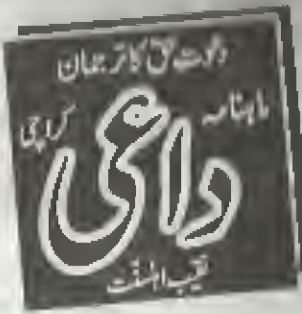 دعوت حق کا ترجمان
ماہنامہ کراچی
داعی
نقیب اہلسنت